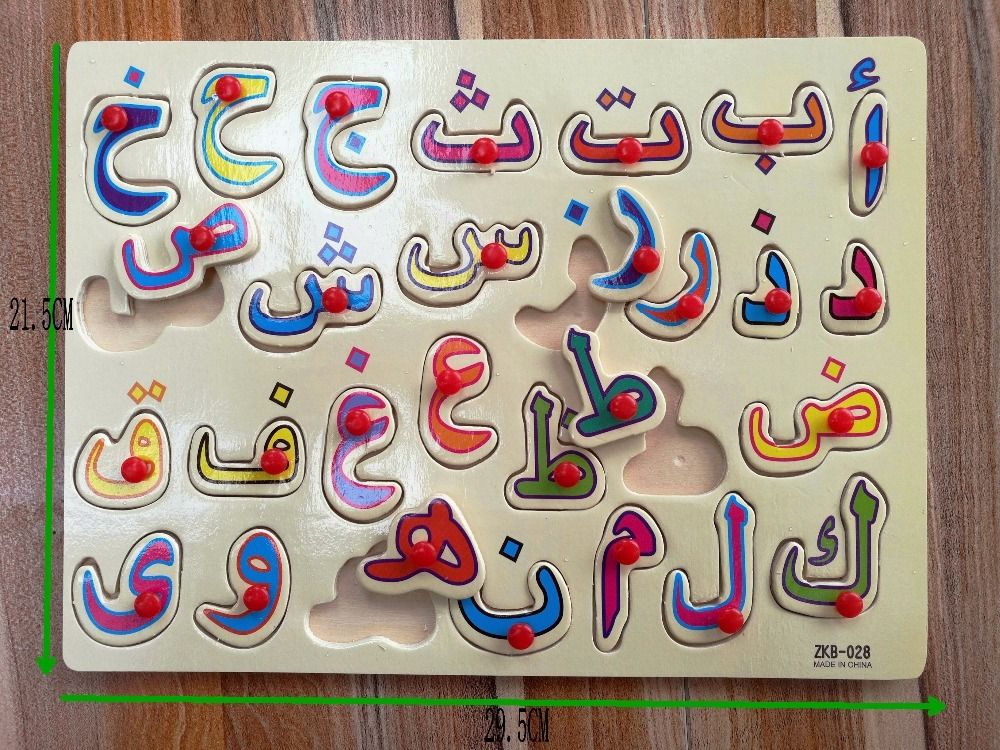 أ ب ت ث ج ح خ
د ذ ر ز س ش ص
21.5CM
ض ط ظ ع غ ف ق
ك ل م ن ه و ى
ZKB-028
MADE IN CHINA
29.5CM